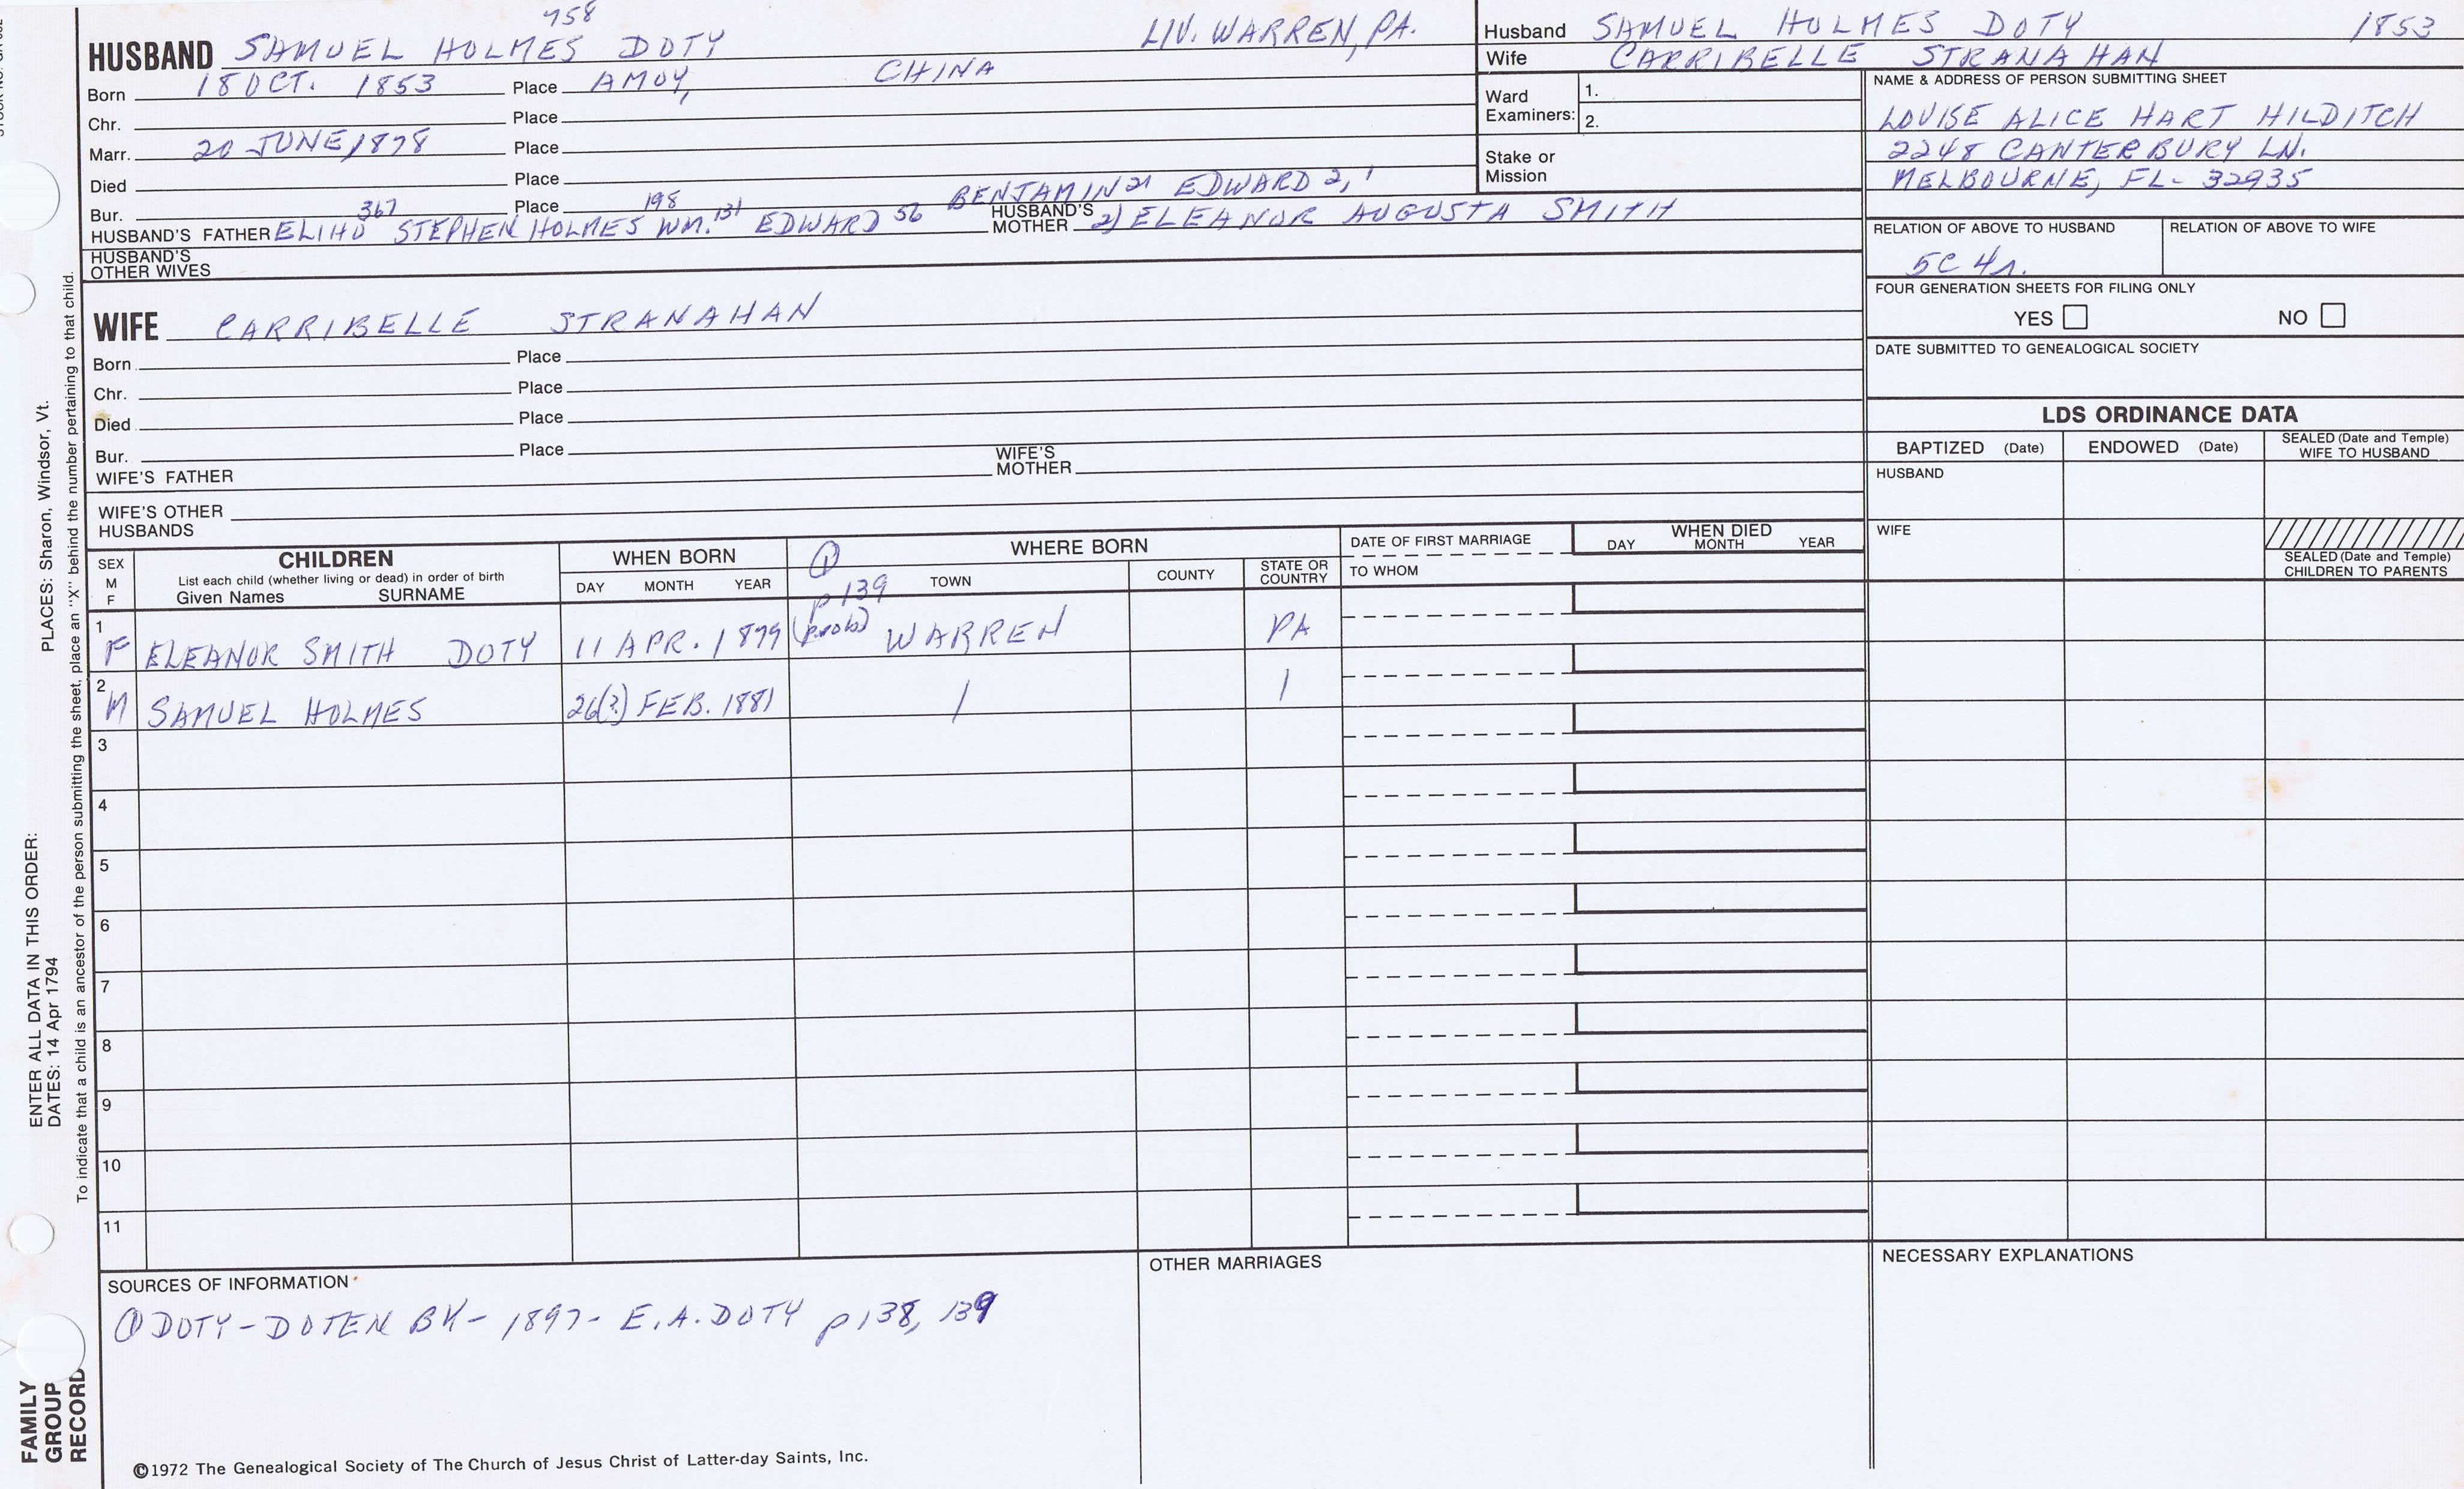 758
HUSBAND SAMUEL HOLMES DOTY LIV. WARREN, PA.
Born 18 OCT. 1853 Place AMOY, CHINA
Chr. Place
Marr. 20 JUNE, 1878 Place
Died Place
Bur. Place
367 198 131 56 BENJAMIN 21 EDWARD 2, 1
HUSBAND'S FATHER ELIHU STEPHEN HOLMES WM. EDWARD HUSBAND'S MOTHER 2) ELEANOR AUGUSTA SMITH
HUSBAND'S OTHER WIVES
WIFE CARRIBELLE STRANAHAN
Born Place
Chr. Place
Died Place
Bur. Place
WIFE'S FATHER WIFE'S MOTHER
WIFE'S OTHER HUSBANDS
Husband SAMUEL HOLMES DOTY 1853
Wife CARRIBELLE STRANAHAN
Ward Examiners: 1.
2.
Stake or Mission
NAME & ADDRESS OF PERSON SUBMITTING SHEET
LOUISE ALICE HART HILDITCH
2248 CANTERBURY LN.
MELBOURNE, FL- 32935
RELATION OF ABOVE TO HUSBAND RELATION OF ABOVE TO WIFE
5C 4r.
FOUR GENERATION SHEETS FOR FILING ONLY
YES NO
DATE SUBMITTED TO GENEALOGICAL SOCIETY
LDS ORDINANCE DATA
BAPTIZED (Date) ENDOWED (Date) SEALED (Date and Temple) WIFE TO HUSBAND
HUSBAND
WIFE
SEALED (Date and Temple) CHILDREN TO PARENTS
SEX M F CHILDREN WHEN BORN WHERE BORN DATE OF FIRST MARRIAGE WHEN DIED
List each child (whether living or dead) in order of birth
Given Names SURNAME DAY MONTH YEAR TOWN COUNTY STATE OR COUNTRY TO WHOM DAY MONTH YEAR
① p 139
1 F ELEANOR SMITH DOTY 11 APR. 1879 (prob) WARREN PA
2 M SAMUEL HOLMES 26(?) FEB. 1881 / /
3
4
5
6
7
8
9
10
11
SOURCES OF INFORMATION
① DOTY-DOTEN BK- 1897- E.A. DOTY p 138, 139
OTHER MARRIAGES
NECESSARY EXPLANATIONS
©1972 The Genealogical Society of The Church of Jesus Christ of Latter-day Saints, Inc.
FAMILY GROUP RECORD
ENTER ALL DATA IN THIS ORDER:
DATES: 14 Apr 1794 PLACES: Sharon, Windsor, Vt.
To indicate that a child is an ancestor of the person submitting the sheet, place an "X" behind the number pertaining to that child.